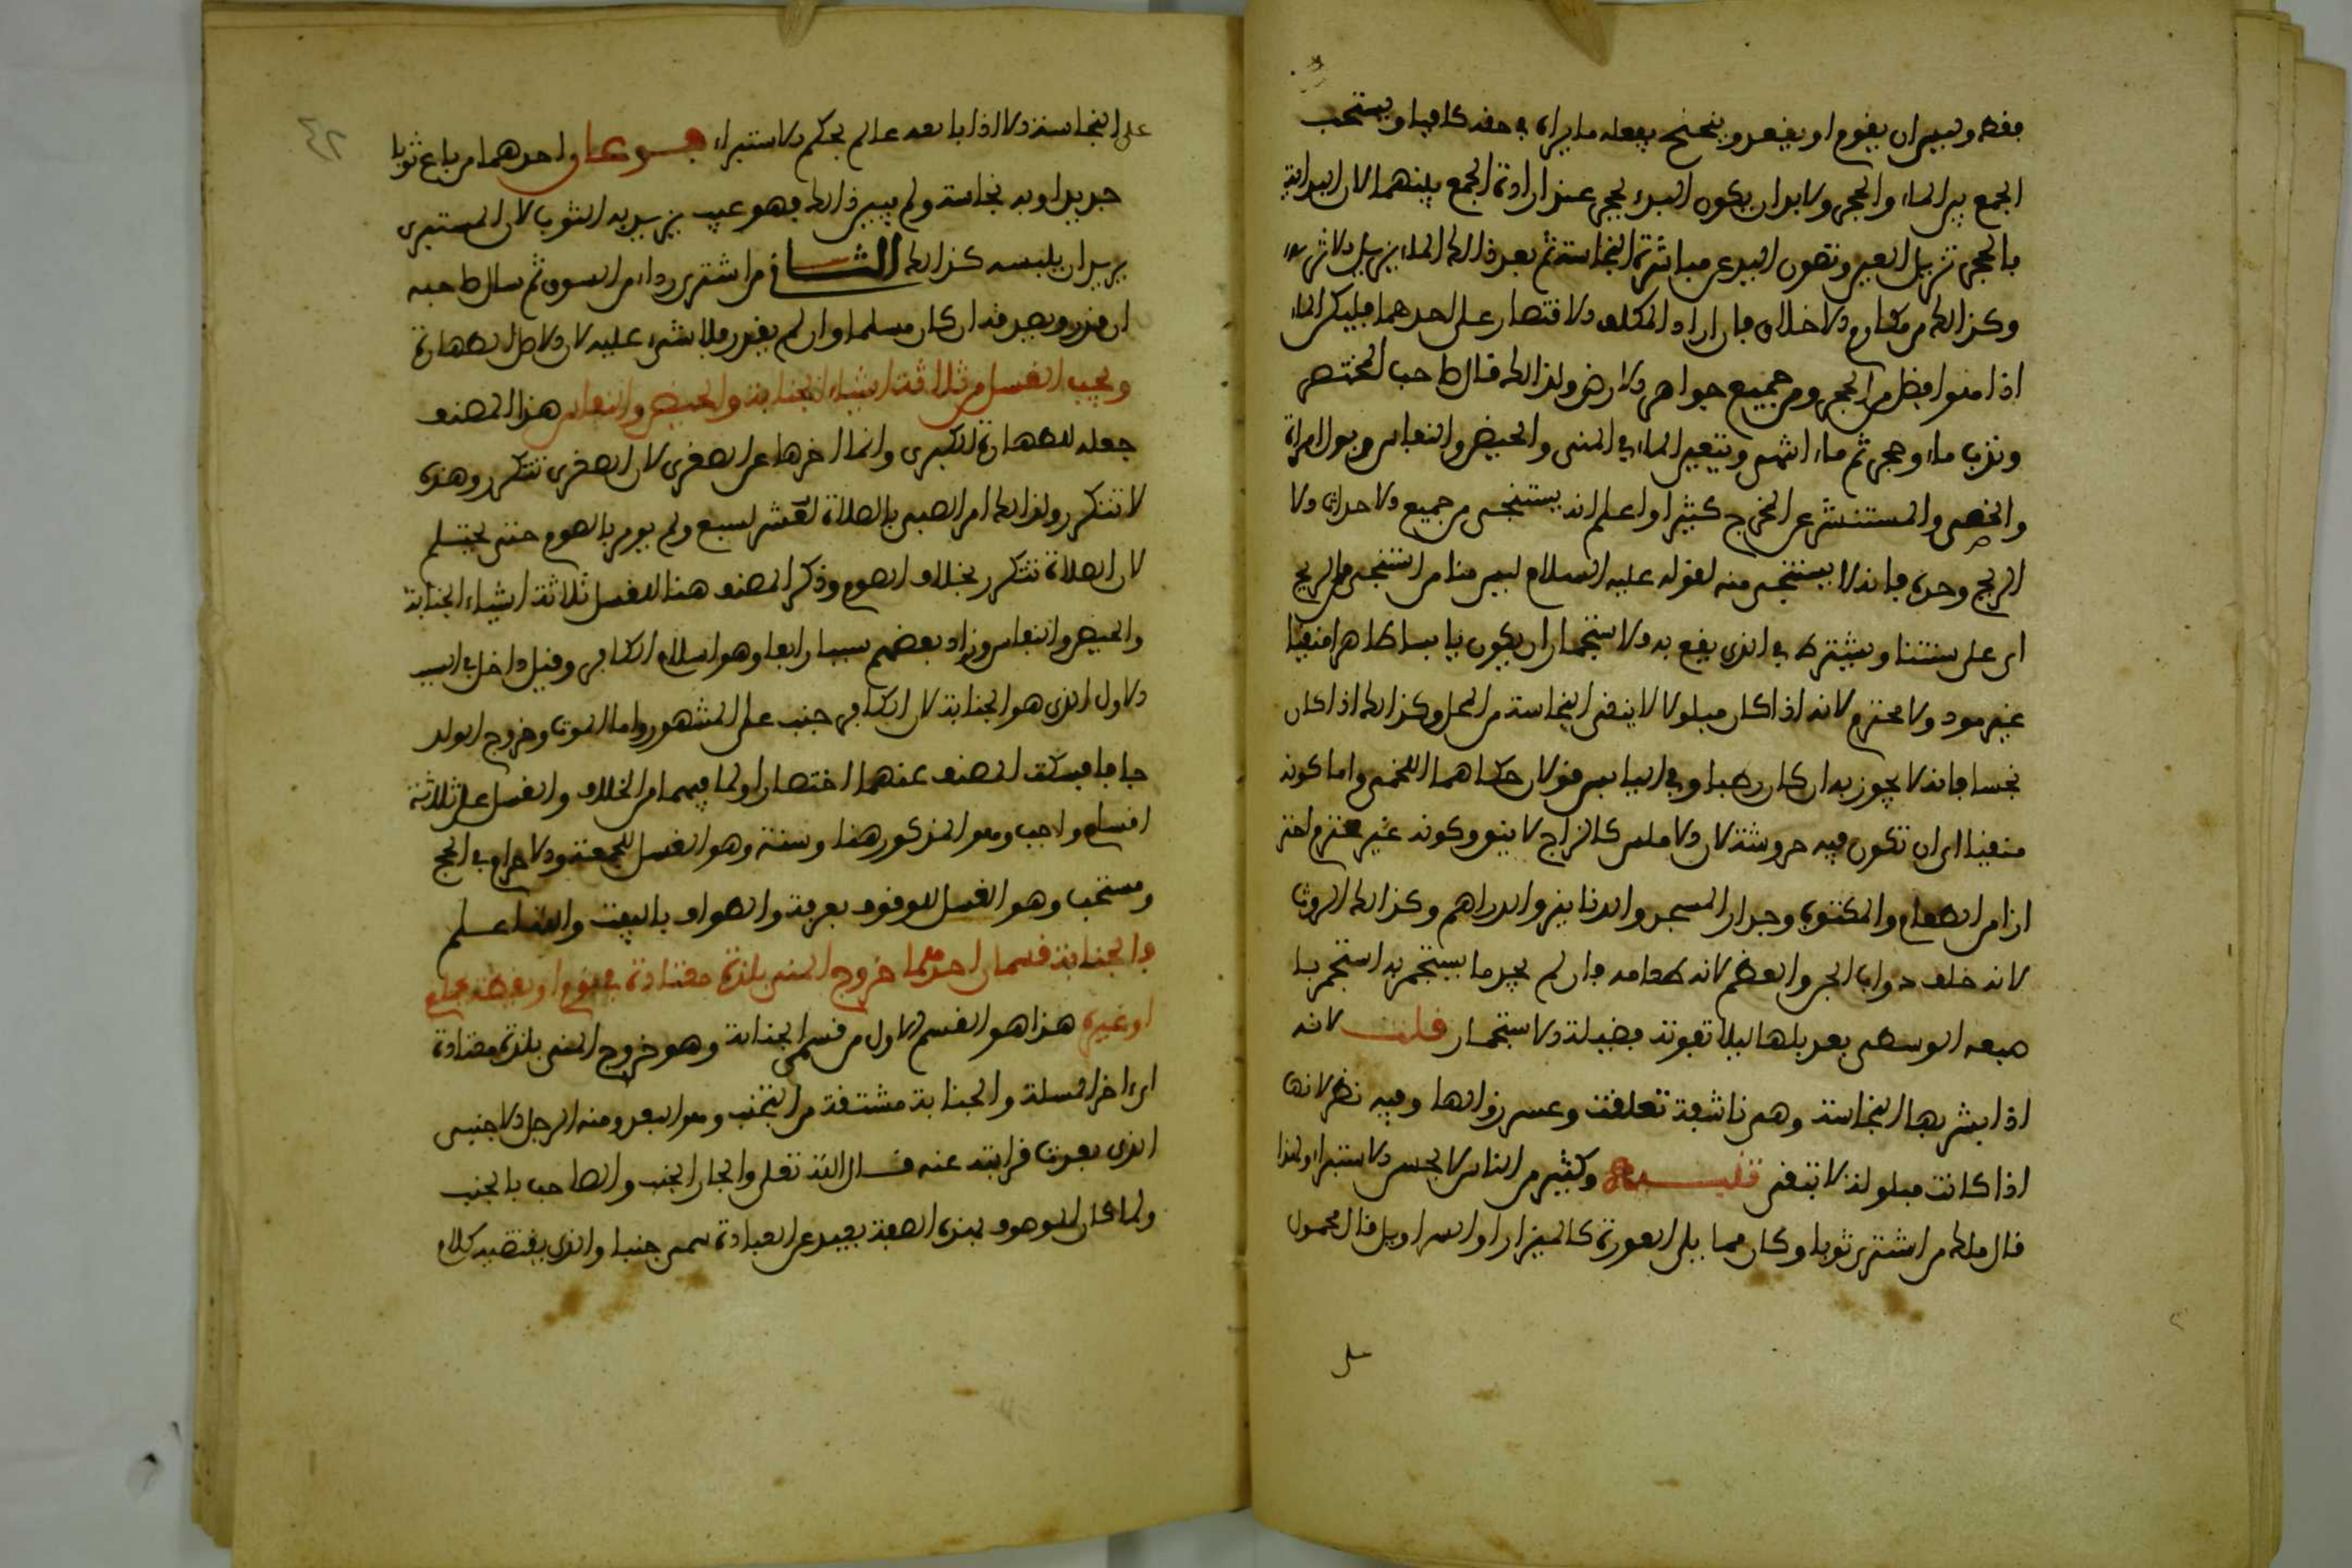 فقط وبين ان يقوم او يقعد ويتنحنح يفعله ما يراه في حقه كافيا ويستحب
الجمع بين الماء والحجر ولا بد ان يكون البدء بحجر عند ارادة الجمع بينهما لان البداية
بالحجر تزيل العين وتصون اليد عن مباشرة النجاسة ثم بعد ذالك الماء يزيل الاثر
وكذالك من مكارم الاخلاق فان اراد المكلف الاقتصار على احدهما فليكن الماء
اذا هنوا فضل من الحجر ومن جميع جواهر الارض ولذالك قال صاحب المختصر
وندب ماء وحجر ثم ماء اثمى وتتعين الماء في المنى والحيض والنفاس وبول امراة
والخصى والمستنشر عن المخرج كثيرا واعلم انه يستنجى من جميع الاحداث الا
الريح وحده فانه لا يستنجى منه لقوله عليه السلام ليس منا من استنجى من الريح
اى على سنتنا ويشترط في الذى يقع به الاستجمار ان يكون يابسا طاهرا منقيا
غير موذ ولا محترم لانه اذا كان مبلولا لا ينقى النجاسة من المحل وكذالك اذا كان
نجسا فانه لا يجوز به ان كان رطبا وفي اليابس قولان حكاهما اللخمى واما كونه
منقيا اى ان تكون فيه حروشة لان الاملس كالزاج لا ينقى وكونه غير محترم احتر
ازا من الطعام والمكتوب وجدار المسجد والدنانير والدراهم وكذالك الروث
لانه خلف دواب الجن والعظم لانه طعامه فان لم يجد ما يستجمر به استجمر با
صبعه الوسطى بعد بلها ليلا تفوته فضيلة الاستجمار قلت لانه
اذا بشر بها النجاسة وهي ناشفة تعلقت وعسر زوالها وفيه نظر لانها
اذا كانت مبلولة لا تنقى تنبيه وكثير من الناس لا يحسن الاستبراء ولذا
قال مالك من اشترى ثوبا وكان مما يلى العورة كالميزار او السراويل قال محمول
على النجاسة الا اذا باعه عالم بحكم الاستبراء فرعان احدهما من باع ثوبا
جديدا وبه نجاسة ولم يبين ذالك فهو عيب يرد به الثوب لان المشترى
يريد ان يلبسه كذالك الثاني من اشترى رداء من السوق ثم سال صاحبه
ان قدر ويصدقه ان كان مسلما وان لم يقدر فلا شىء عليه لان الاصل الطهارة
ويجب الغسل من ثلاثة اشياء الجنابة والحيض والنفاس هذا المصنف
جعله للطهارة الكبرى وانما اخرها عن الصغرى لان الصغرى تتكرر وهذه
لا تتكرر ولذالك امر الصبى بالصلاة لعشر لسبع ولم يومر بالصوم حتى يحتلم
لان الصلاة تتكرر بخلاف الصوم وذكر المصنف هنا للغسل ثلاثة اشياء الجنابة
والحيض والنفاس وزاد بعضهم سببا رابعا وهو اسلام الكافر وقيل داخل في السبب
الاول الذى هو الجنابة لان الكافر جنب على المشهور واما الموت وخروج الولد
جافا فسكت المصنف عنهما اختصارا ولما فيهما من الخلاف والغسل على ثلاثة
اقسام واجب وهو المذكور هنا وسنة وهو الغسل للجمعة والاحرام في الحج
ومستحب وهو الغسل للوقوف بعرفة والطواف بالبيت والله اعلم
والجنابة قسمان احدهما خروج المنى بلذة معتادة في نوم او يقظة بجماع
او غيره هذا هو القسم الاول من قسمى الجنابة وهو خروج المنى بلذة معتادة
اى اخر المسلة والجنابة مشتقة من التجنب وهو البعد ومنه الرجل الاجنبى
الذى بعدت قرابته عنه قال الله تعلى والجار الجنب والصاحب بالجنب
ولما كان الموصوف بهذه الصفة بعيد عن العبادة سمى جنبا والذى يقتضيه كلام